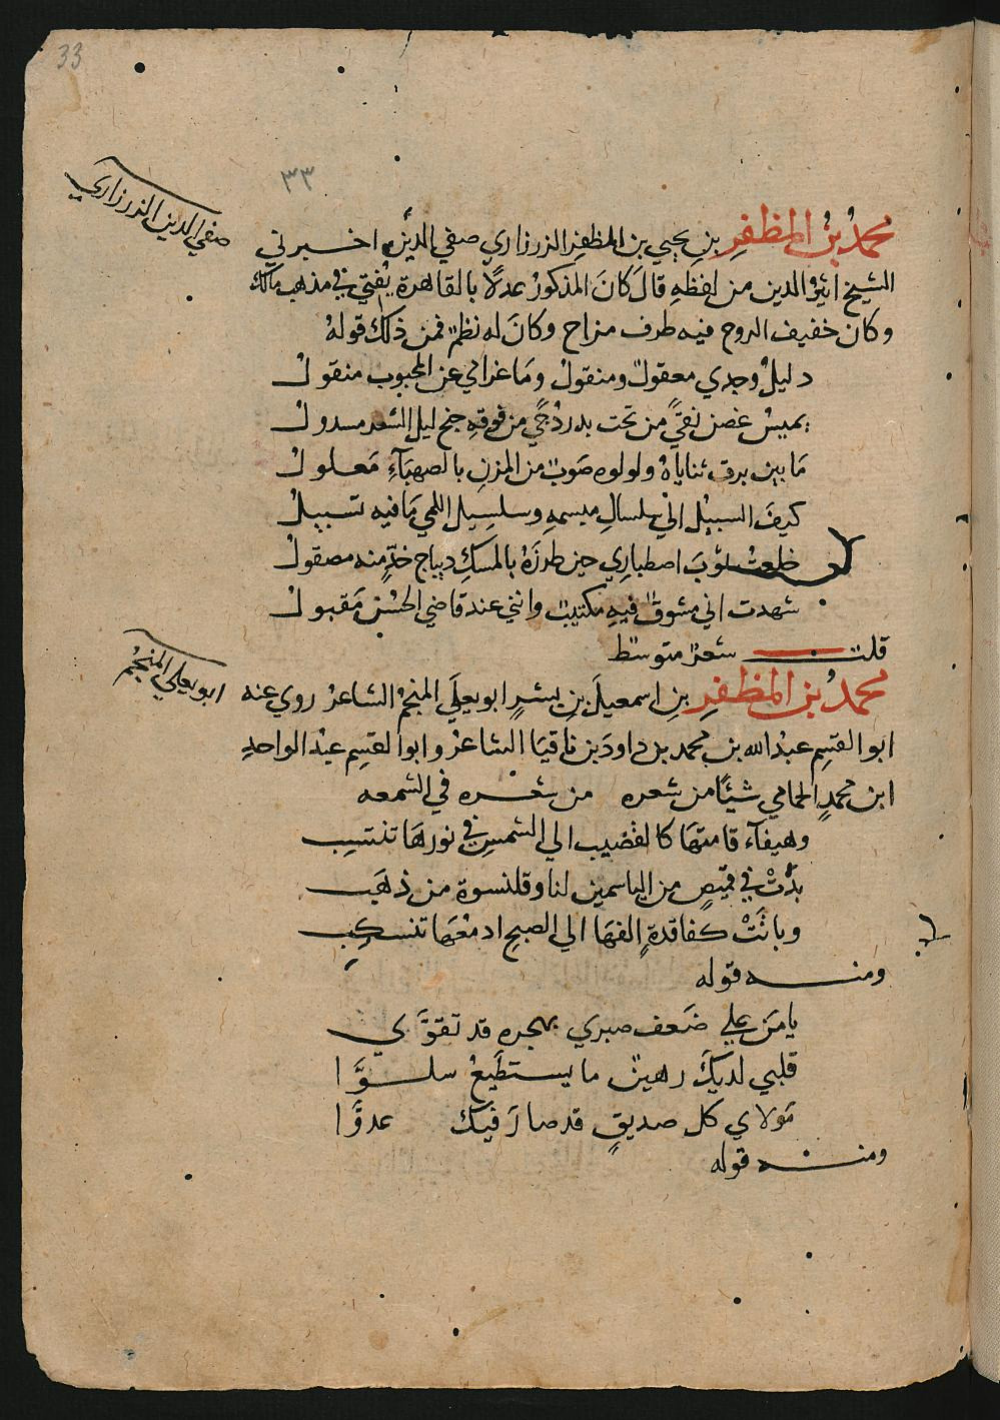 33
٣٣
صفي الدين الزرزاري
محمد بن المظفر بن يحيي بن المظفر الزرزاري صفي الدين اخبرني
الشيخ اثير الدين من لفظه قال كان المذكور عدلا بالقاهرة يفتي في مذهب مالك
وكان خفيف الروح فيه طرف مزاح وكان له نظم فمن ذلك قوله
دليل وجدي معقول ومنقول وما غرامي عن المحبوب منقول
يميس غصن نقي من تحت بدر دجي من فوقه جنح ليل الشعر مسدول
ما بين برق ثناياه ولولوه صوب من المزن بالصهباء معلول
كيف السبيل الي سلسال مبسمه وسلسبيل اللمي ما فيه تسبيل
خلعت ثوب اصطباري حين طرزه بالمسك ديباج خد منه مصقول
شهدت اني مشوق فيه مكتيب وانني عند قاضي الحسن مقبول
قلت شعر متوسط
ابو يعلي المنجم
محمد بن المظفر بن اسمعيل بن بشر ابو يعلي المنجم الشاعر روي عنه
ابو القسم عبد الله بن محمد بن داود بن ناقيا الشاعر وابو القسم عبد الواحد
ابن محمد الحمامي شيئا من شعره من شعره في الشمعه
وهيفآء قامتها كالقضيب الي الشمس في نورها تنتسب
بدت في قميص من الياسمين لنا وقلنسوة من ذهب
وباتت كفاقدة الفها الي الصبح ادمعها تنسكب
ومنه قوله
يا من علي ضعف صبري بهجره قد تقوي
قلبي لديك رهين ما يستطيع سلوا
مولاي كل صديق قد صار فيك عدوا
ومنه قوله